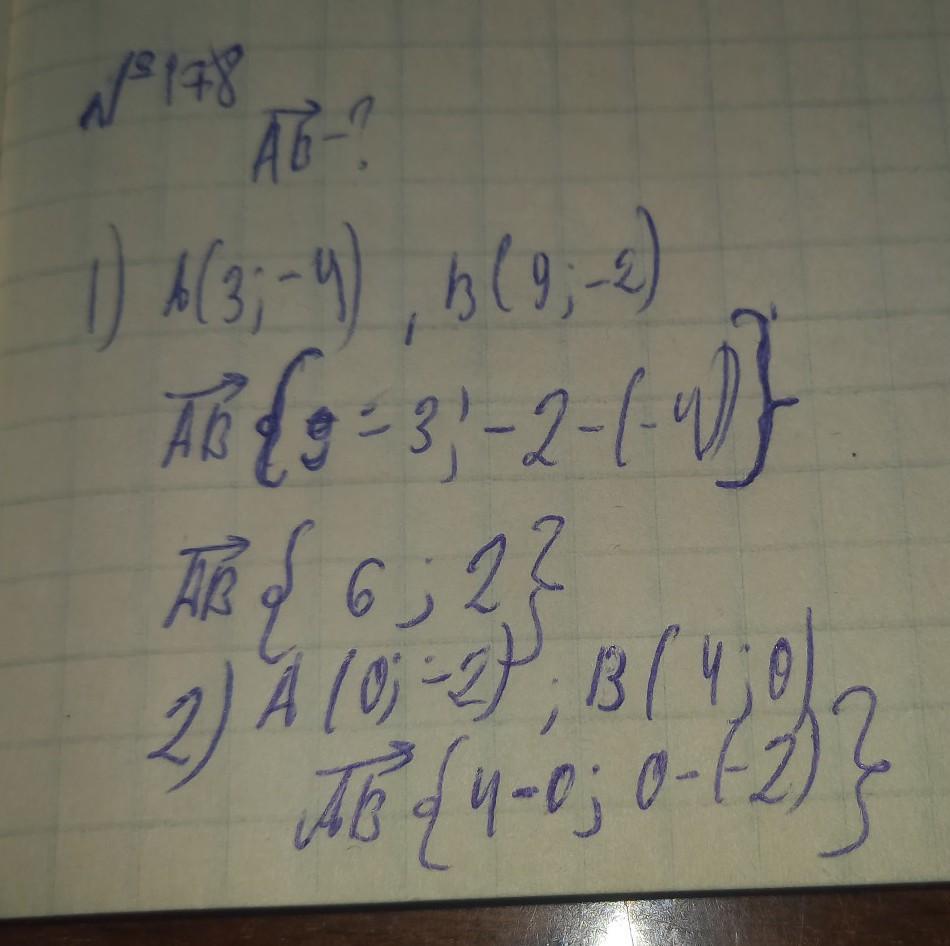 №178
AB-?
1) A(3;-4), B(9;-2)
AB{9-3;-2-(-4)}
AB{6;2}
2) A(0;-2), B(4;0)
AB{4-0; 0-(-2)}